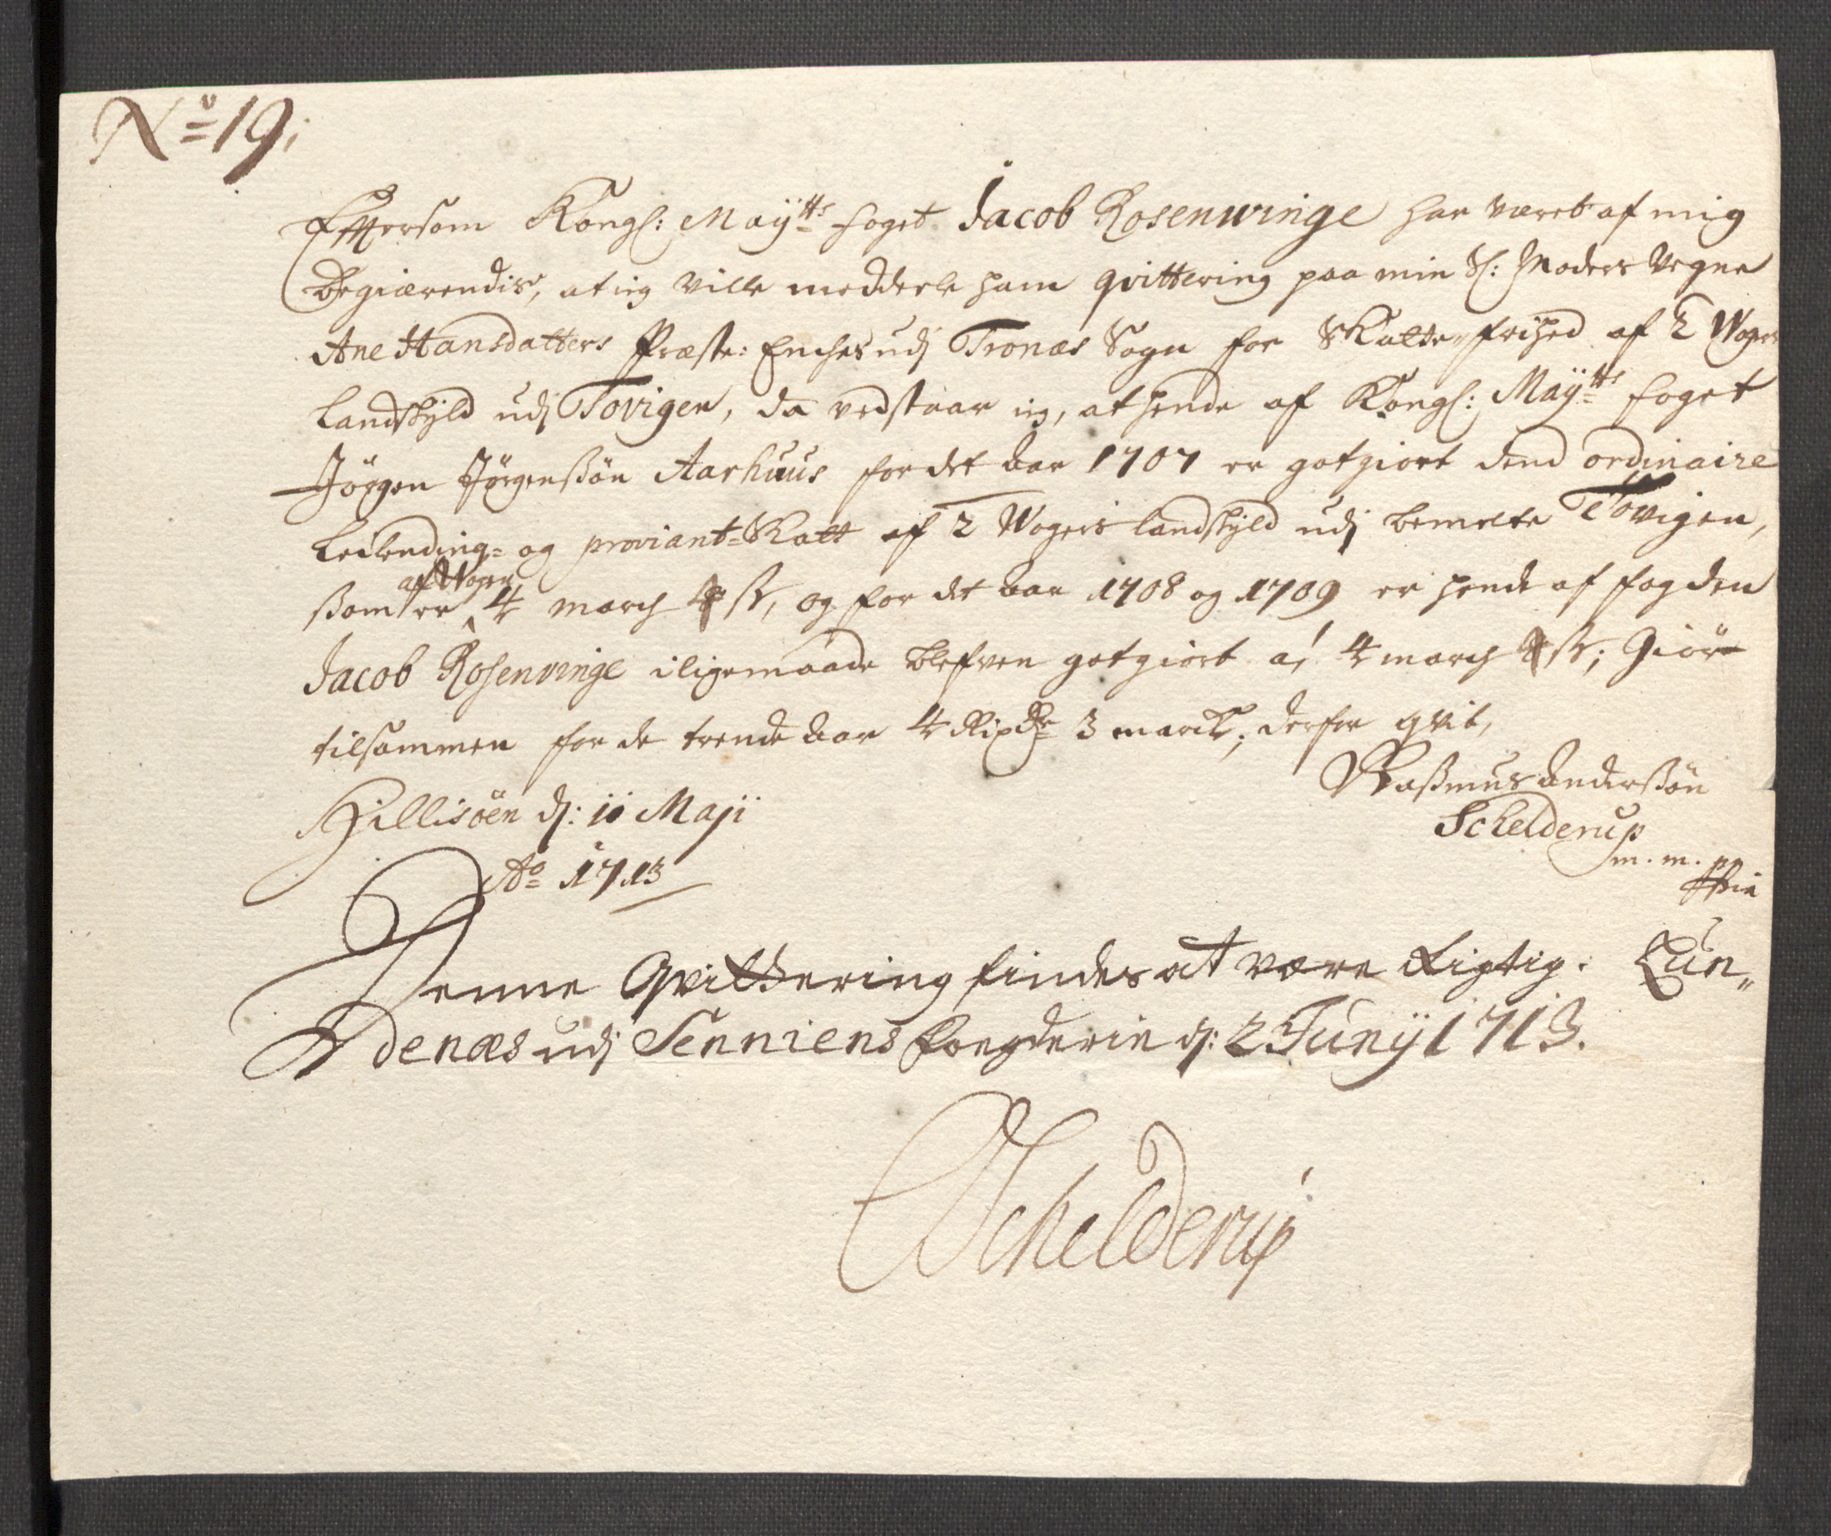 No 19.
Efftersom Kongl: Maytts foget Jacob Rosenwinge har været af mig
begiærendis, at ieg ville meddeele ham qvittering paa min Sl: Moders Vegne
Ane Hansdatters Præste-Enches udj Tronæs Sogn for Skatte-frihed af 2 Wogers
Landskyld udj Tovigen, da vedstaar ieg, at hende af Kongl: Maytts foget
Jörgen Jörgenssön Aarhuus for det Aar 1707 er gotgiort dend ordinaire
Leilending- og proviant-Skatt af 2 Wogers landskyld udj bemelte Tovigen,
som er af Wogen 4 march ß, og for det Aar 1708 og 1709 er hende af fogden
Jacob Rosenvinge iligemaade blefven gotgiort a, 4 march ß; Giör
tilsammen for de trende Aar 4 Rixdr 3 march, derfor qvit,
Hillisöen d: 10 Maji
Ao 1713
Rasmus Anderssön
Schelderup
m. m. ppia
Denne Qvittering findes at være Rigtig. Lun-
denæs udj Senniens fougderie d: 2 Junij 1713.
Schelderup